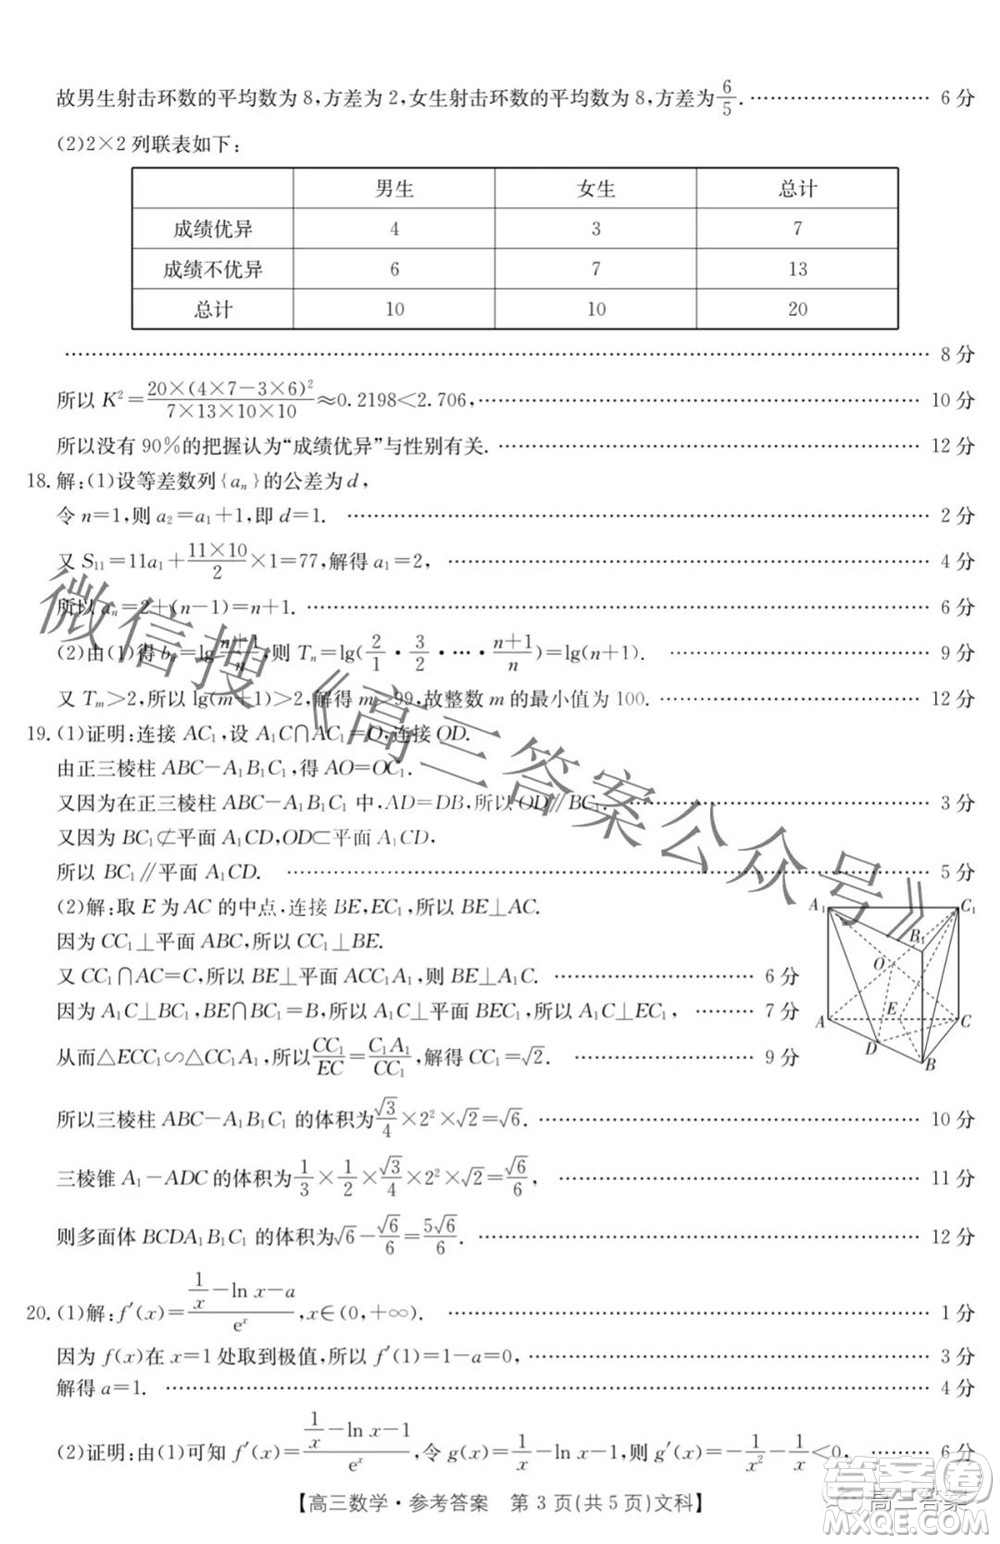 故男生射击环数的平均数为 8,方差为 2,女生射击环数的平均数为 8,方差为6/5. …… 6 分
(2)2×2 列联表如下:
男生 女生 总计
成绩优异 4 3 7
成绩不优异 6 7 13
总计 10 10 20
…… 8 分
所以 K²=20×(4×7−3×6)²/7×13×10×10≈0.2198<2.706, …… 10 分
所以没有 90%的把握认为“成绩优异”与性别有关. …… 12 分
18.解:(1)设等差数列{aₙ}的公差为 d,
令 n=1,则 a₂=a₁+1,即 d=1. …… 2 分
又 S₁₁=11a₁+11×10/2×1=77,解得 a₁=2, …… 4 分
所以 aₙ=2+(n−1)=n+1. …… 6 分
(2)由(1)得 bₙ=lg n+1/n,则 Tₙ=lg(2/1·3/2·…·n+1/n)=lg(n+1). …… 9 分
又 Tₘ>2,所以 lg(m+1)>2,解得 m>99,故整数 m 的最小值为 100. …… 12 分
19.(1)证明:连接 AC₁,设 A₁C∩AC₁=O,连接 OD.
由正三棱柱 ABC−A₁B₁C₁,得 AO=OC₁.
又因为在正三棱柱 ABC−A₁B₁C₁ 中,AD=DB,所以 OD∥BC₁. …… 3 分
又因为 BC₁⊄平面 A₁CD,OD⊂平面 A₁CD,
所以 BC₁∥平面 A₁CD. …… 5 分
(2)解:取 E 为 AC 的中点,连接 BE,EC₁,所以 BE⊥AC.
因为 CC₁⊥平面 ABC,所以 CC₁⊥BE.
又 CC₁∩AC=C,所以 BE⊥平面 ACC₁A₁,则 BE⊥A₁C. …… 6 分
因为 A₁C⊥BC₁,BE∩BC₁=B,所以 A₁C⊥平面 BEC₁,所以 A₁C⊥EC₁, …… 7 分
从而△ECC₁∽△CC₁A₁,所以CC₁/EC=C₁A₁/CC₁,解得 CC₁=√2. …… 9 分
所以三棱柱 ABC−A₁B₁C₁ 的体积为√3/4×2²×√2=√6. …… 10 分
三棱锥 A₁−ADC 的体积为1/3×1/2×√3/4×2²×√2=√6/6, …… 11 分
则多面体 BCDA₁B₁C₁ 的体积为√6−√6/6=5√6/6. …… 12 分
A₁ C₁ B₁ O A E C D B
20.(1)解:f′(x)=(1/x−ln x−a)/eˣ,x∈(0,+∞). …… 1 分
因为 f(x)在 x=1 处取到极值,所以 f′(1)=1−a=0, …… 3 分
解得 a=1. …… 4 分
(2)证明:由(1)可知 f′(x)=(1/x−ln x−1)/eˣ,令 g(x)=1/x−ln x−1,则 g′(x)=−1/x²−1/x<0, …… 6 分
【高三数学·参考答案 第 3 页(共 5 页)文科】
微信搜《高三答案公众号》
高三答案
答案圈
MXQE.COM